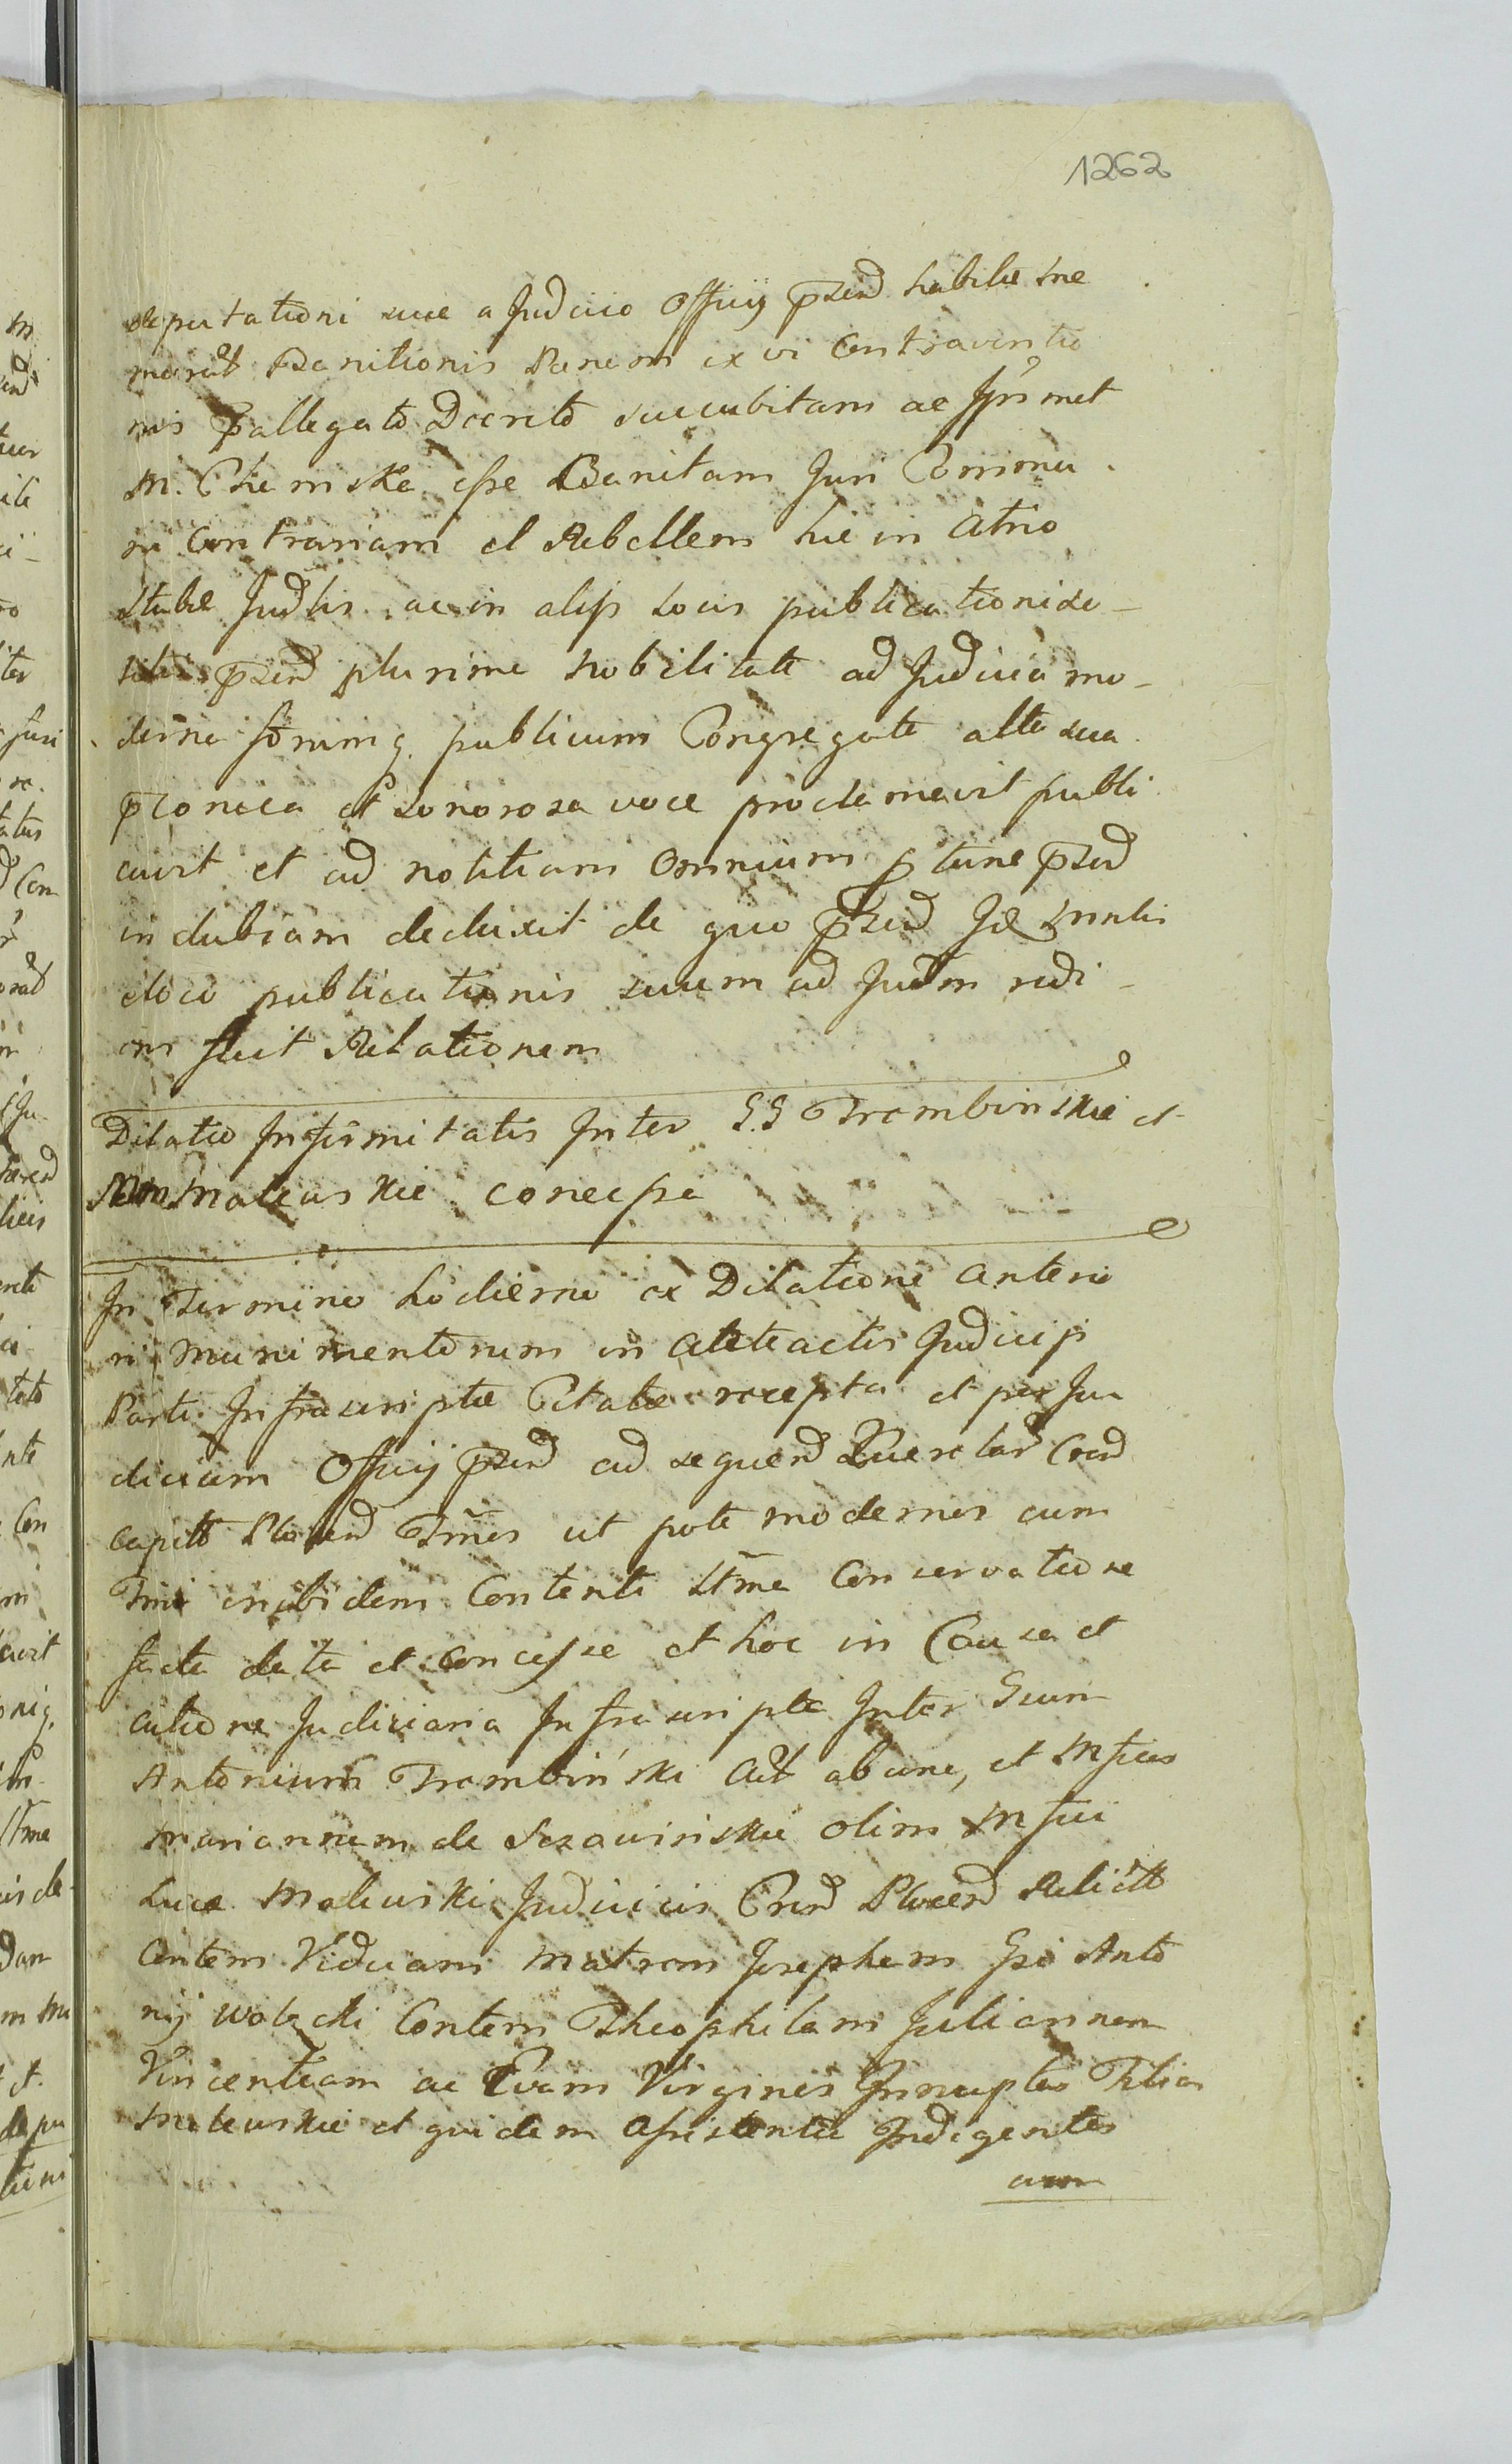 1262
deputationi suae a Judicio Officij pzend habitae me
morat Banitionis Panem ex vi Contraventio
nis pallegato Decreto succubitam ac Ipsmet
M. Chamska esse Banitam Juri Commu
ni Contrariam et Rebellem hic in Atrio
Stubae Judlis ac in alijs locis publicationi so-
litis pzend plurime Nobilitate ad Judicia mo-
derna forumq publicum Congregate alta sua
pconica et Sonorosa voce proclamavit publi
cavit et ad notitiam Omnium p tunc pzend
indubiam deduxit de quo pzend
e loco publicationis suum ad Judm redi
ens fecit Relationem
Dilatio Infirmitatis Inter G.G. Trembinskie et
MM Maleuskie concessa
In Termino hodierno ex Dilatione Anterio
ri Munimentorum in Attactis Judicijs
Parti Infrascriptae Citatae recepta et per Ju
dicium Officij pzend ad sequend Querelar Cend
capitt Plocend Tmos ut pote modernos cum
Tmi inibidem Contenti Stme Conservatione
facta data et Concessa et hoc in Causa et
Actione Judiciaria Infrascripta Inter Gsum
Antonium Trembiński Act ab una, et Mficas
Mariannam de Szczawinskie olim Mfici
Lucae Maleuski Judicis Cend Plocend Relictt
Contem Viduam Matrem Josepham Gsi Anto
nij Wolscki Contem Theophilam Juliannam
Vincentiam ac Evam Virgines Innuptas Filias
Maleuskie et quidem Assistentia Indigentes
cum